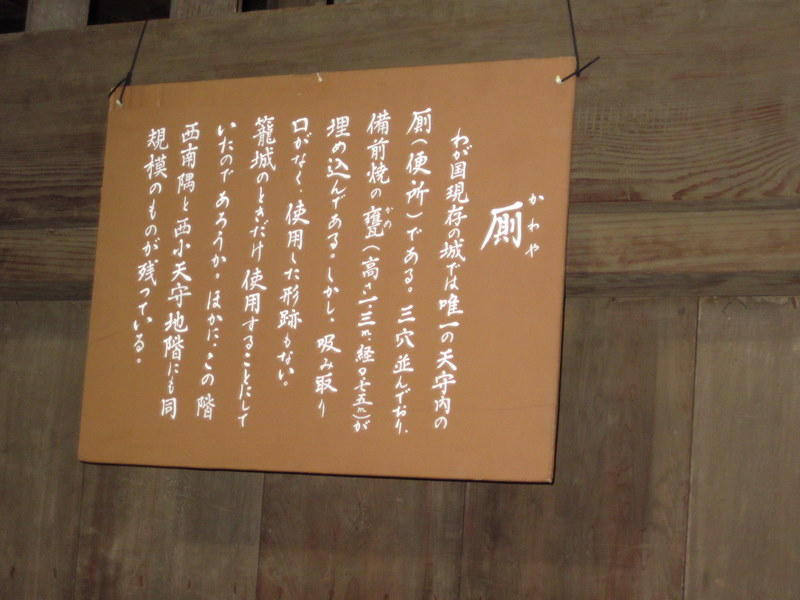 かわや
厠
わが国現存の城では唯一の天守内の
厠(便所)である。三穴並んでおり、
備前焼の甕(高さ一.三m、経〇.七五m)が
かめ
埋め込んである。しかし、吸み取り
口がなく、使用した形跡もない。
籠城のときだけ使用することにして
いたのであろうか。ほかに、この階
西南隅と西小天守地階にも同
規模のものが残っている。